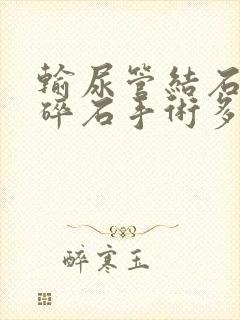 輸尿管結石
碎石手術多
醉寒玉